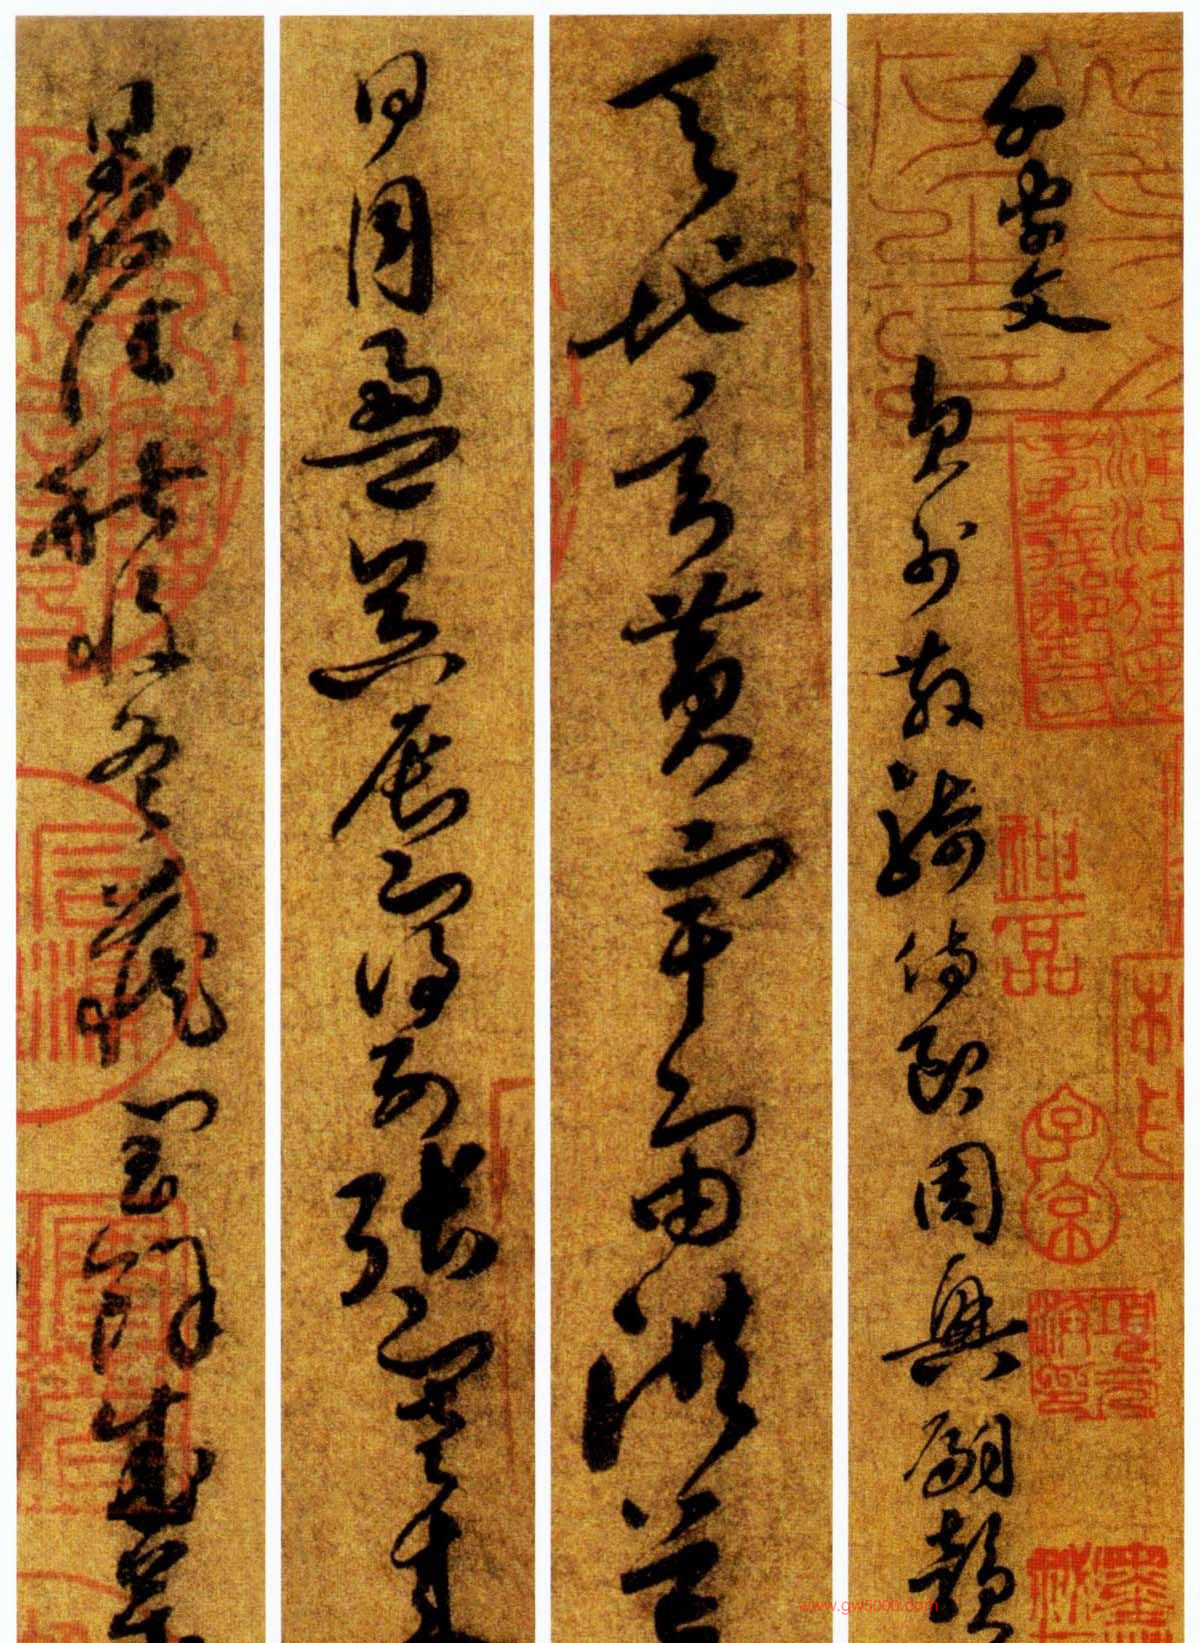 千字文
員外散騎侍郎周興嗣韻
天地玄黃宇宙洪荒
日月盈昃辰宿列張寒来
暑往秋收冬藏閏餘成
神品
子京
www.gw5000.com